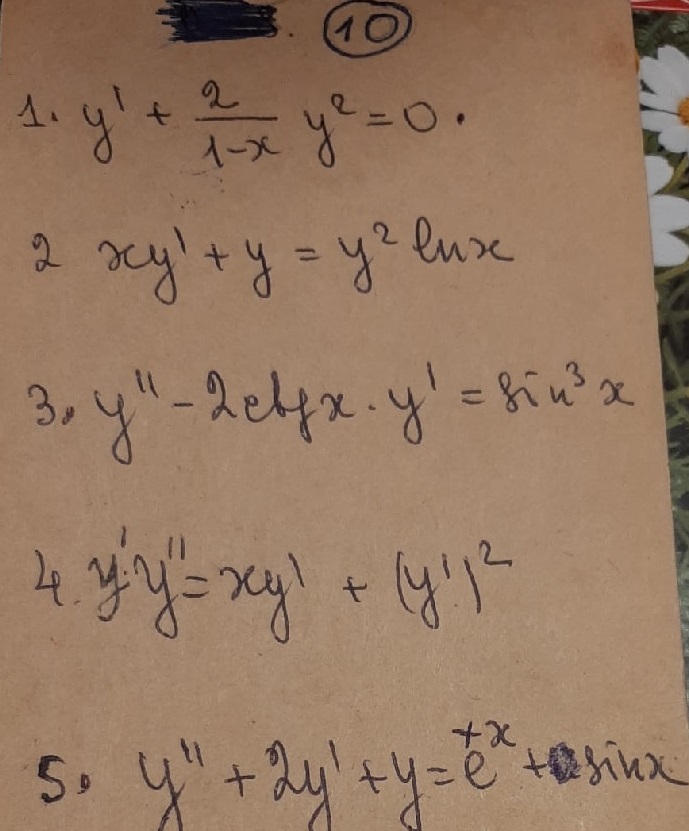 10
1. y' + 2/(1-x) y² = 0.
2 xy' + y = y² lnx
3. y'' - 2ctgx · y' = sin³x
4. y'y'' = xy' + (y')²
5. y'' + 2y' + y = e⁺ˣ + sinx